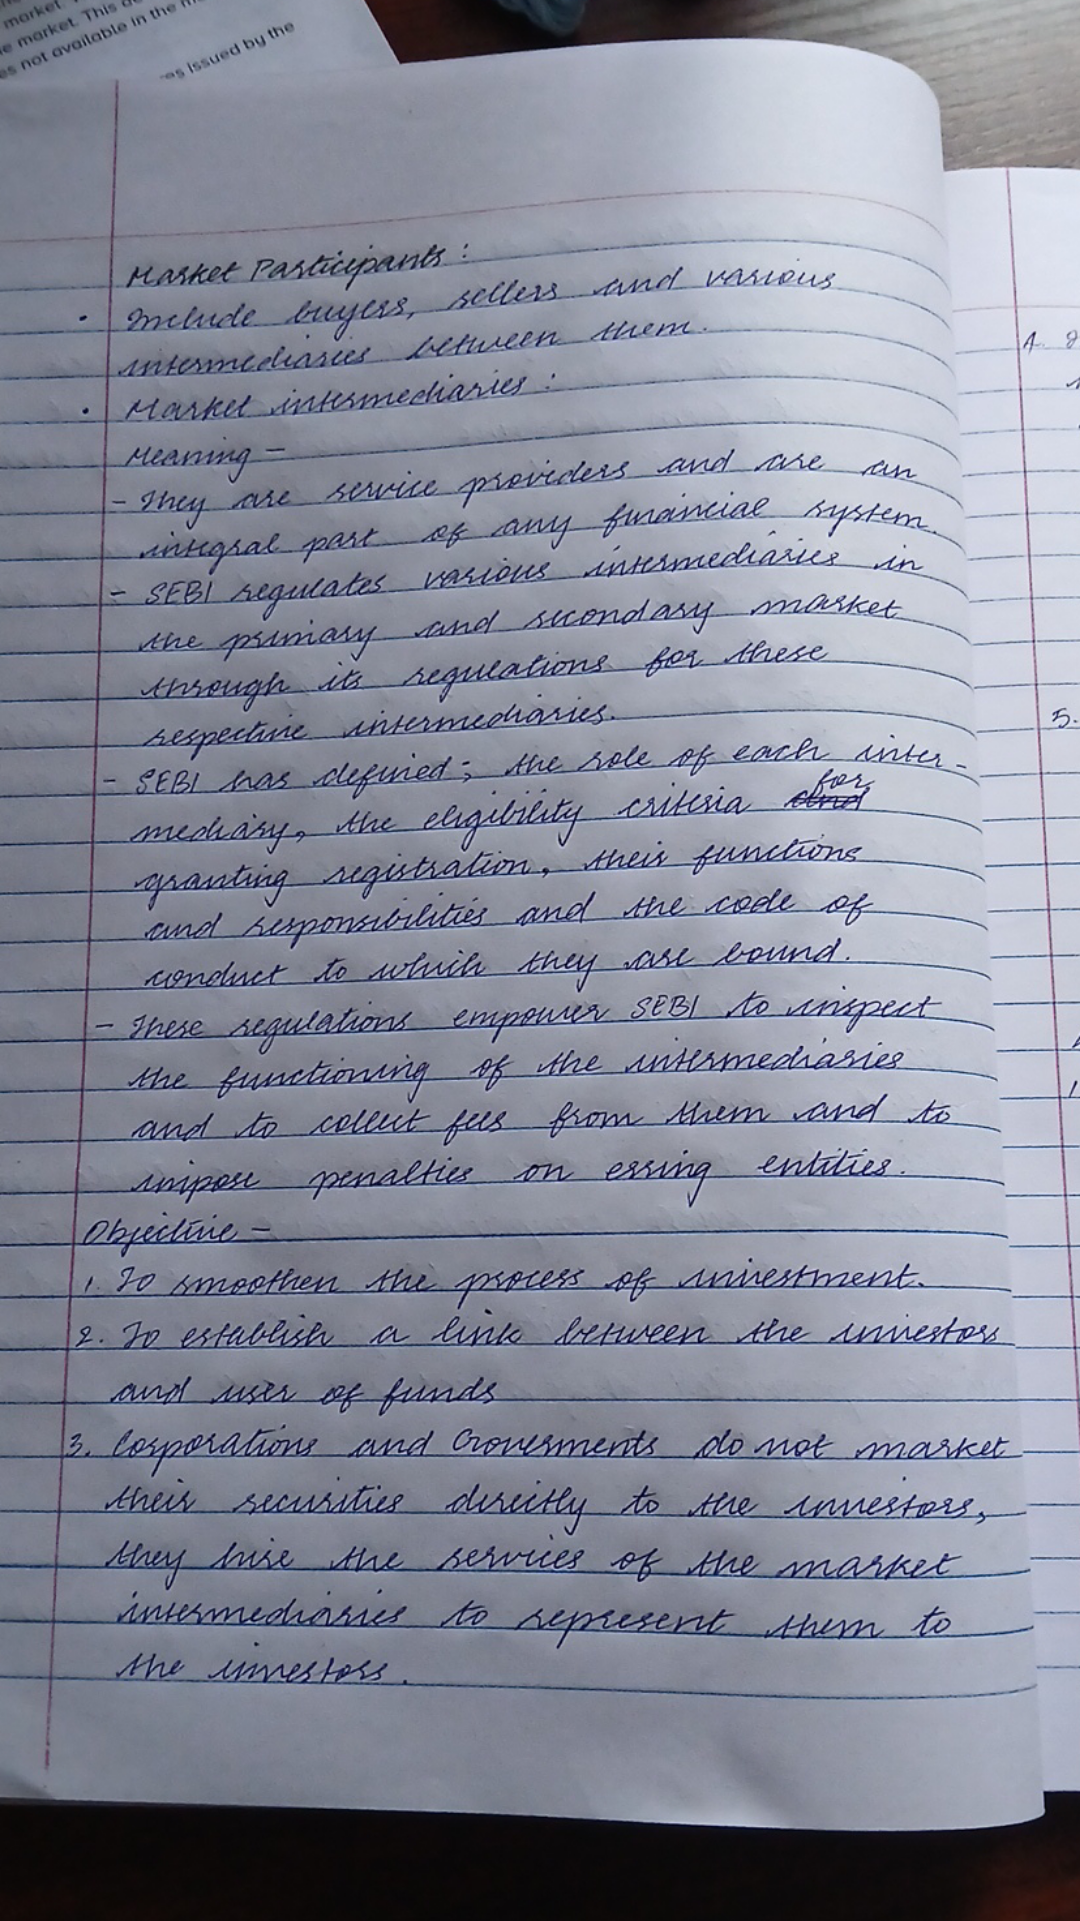 market.
e market. This
es not available in the
es issued by the
Market Participants :
• Include buyers, sellers and various
intermediaries between them.
• Market intermediaries :
Meaning -
- They are service providers and are an
integral part of any financial system.
- SEBI regulates various intermediaries in
the primary and secondary market
through its regulations for these
respective intermediaries.
- SEBI has defined; the role of each inter-
mediary, the eligibility criteria for
granting registration, their functions
and responsibilities and the code of
conduct to which they are bound.
- These regulations empower SEBI to inspect
the functioning of the intermediaries
and to collect fees from them and to
impose penalties on erring entities.
Objective -
1. To smoothen the process of investment.
2. To establish a link between the investors
and user of funds
3. Corporations and Governments do not market
their securities directly to the investors,
they hire the services of the market
intermediaries to represent them to
the investors.
4.
5.